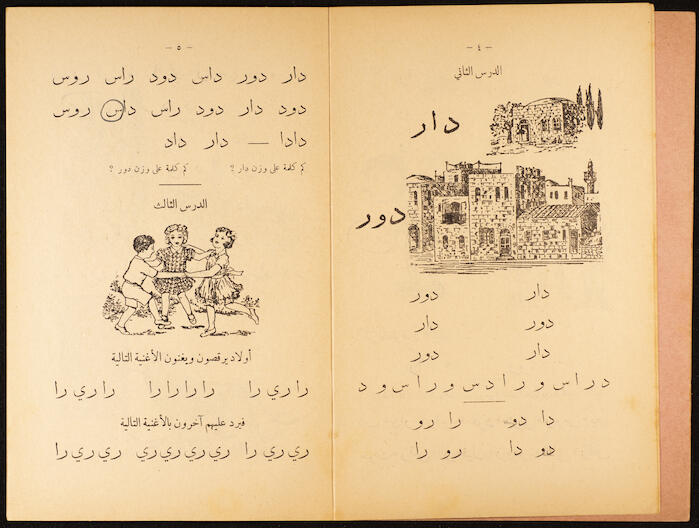 - ٤ -
الدرس الثاني
دار
دور
دار دور
دور دار
دار دور
د ر ا س و ر ا د س و ر ا س و د
دا دو را رو
دو دا رو را
- ٥ -
دار دور داس دود راس روس
دود دار دود راس داس روس
دادا — دار داد
كم كلمة على وزن دار ؟ كم كلمة على وزن دور ؟
الدرس الثالث
أولاد يرقصون ويغنون الأغنية التالية
را ري را را را را را را ري را
فيرد عليهم آخرون بالأغنية التالية
ري ري را ري ري ري ري ري ري را